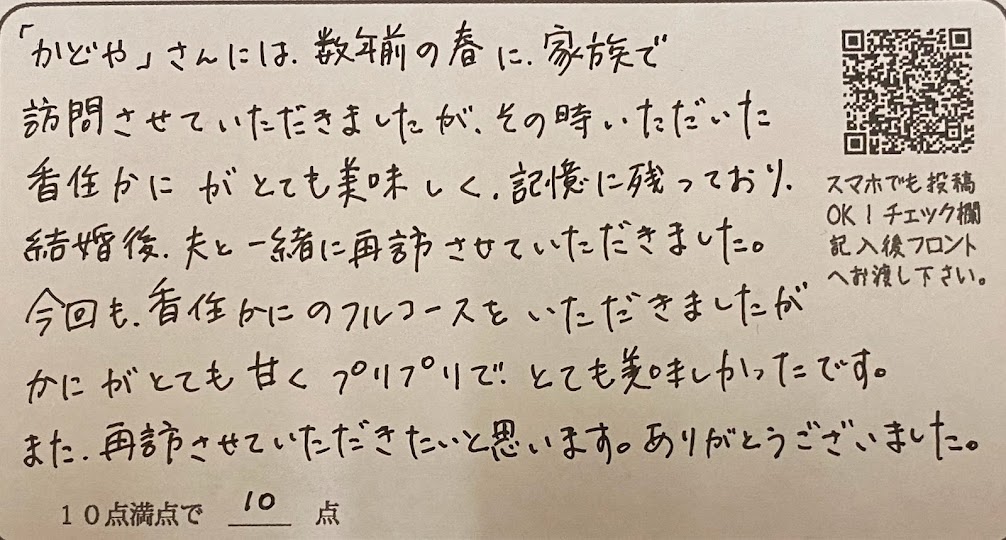 「かどや」さんには、数年前の春に、家族で
訪問させていただきましたが、その時いただいた
香住かにがとても美味しく、記憶に残っており、
結婚後、夫と一緒に再訪させていただきました。
今回も、香住かにのフルコースをいただきましたが
かにがとても甘くプリプリで、とても美味しかったです。
また、再訪させていただきたいと思います。ありがとうございました。
10点満点で 10 点
スマホでも投稿
OK！チェック欄
記入後フロント
へお渡し下さい。